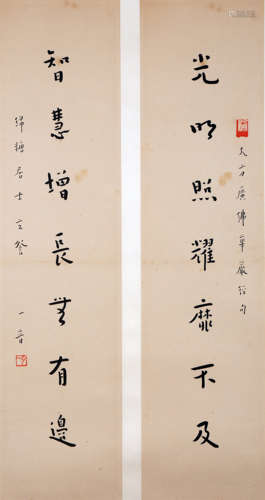 大方廣佛華嚴經句
光明照耀靡不及
智慧增長無有邊
居士 一音